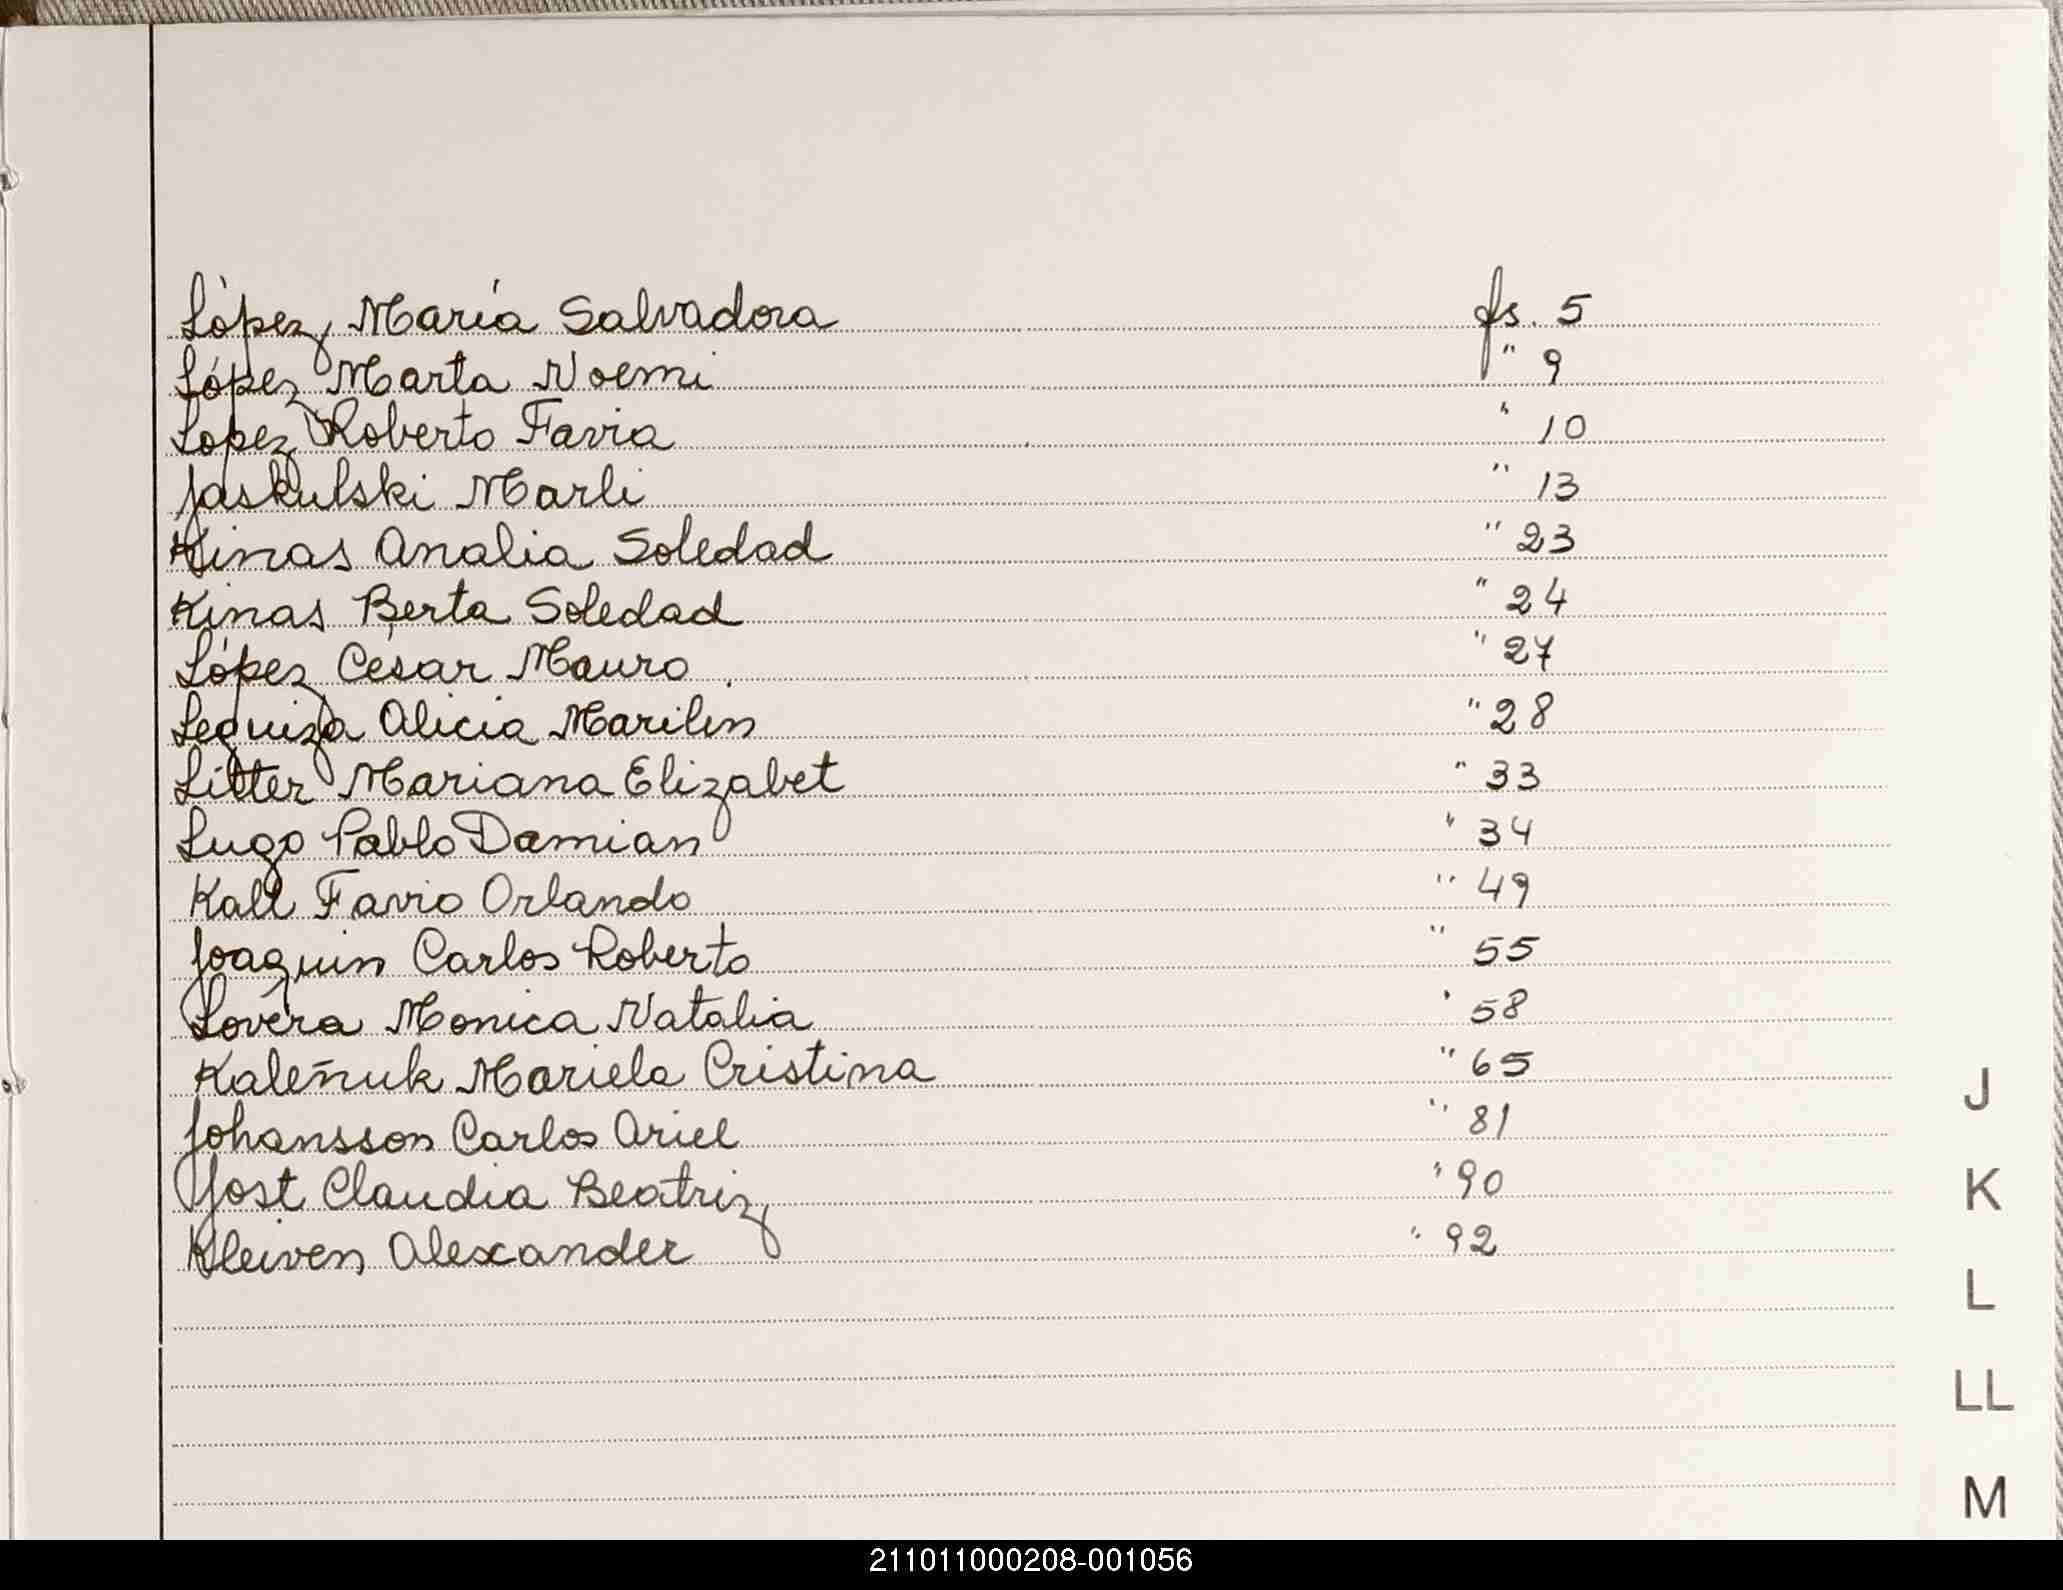 López, María Salvadora fs. 5
López Marta Noemi " 9
Lopez Roberto Favia " 10
Jaskulski Marli " 13
Kinas Analia Soledad " 23
Kinas Berta Soledad " 24
López Cesar Mauro " 27
Leguiza Alicia Marilin " 28
Litter Mariana Elizabet " 33
Lugo Pablo Damian " 34
Kall Favio Orlando " 49
Joaquin Carlos Roberto " 55
Lovera Monica Natalia " 58
Kaleñuk Mariela Cristina " 65
Johansson Carlos Ariel " 81
Jost Claudia Beatriz " 90
Kleiven Alexander " 92
J
K
L
LL
M
211011000208-001056